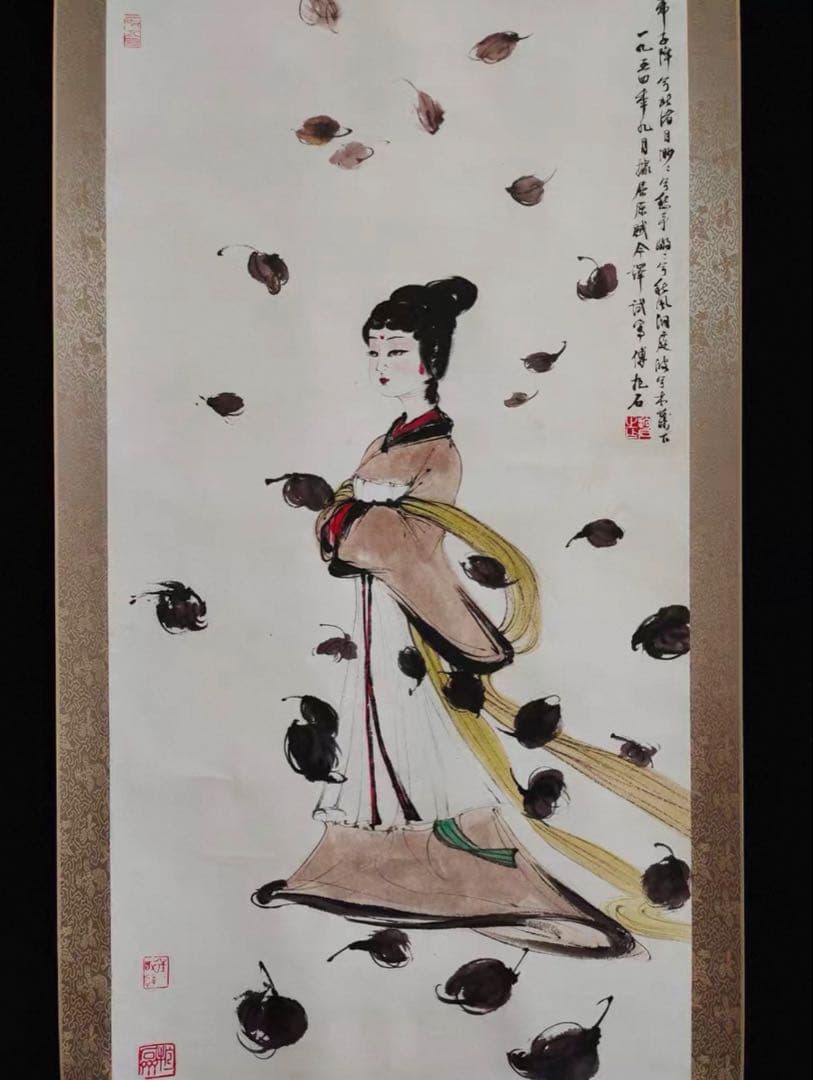 帝子降兮北渚目眇〻兮愁予嫋〻兮秋风洞庭波兮木葉下
一九五四年九月據屈原賦今譯試寫傅抱石